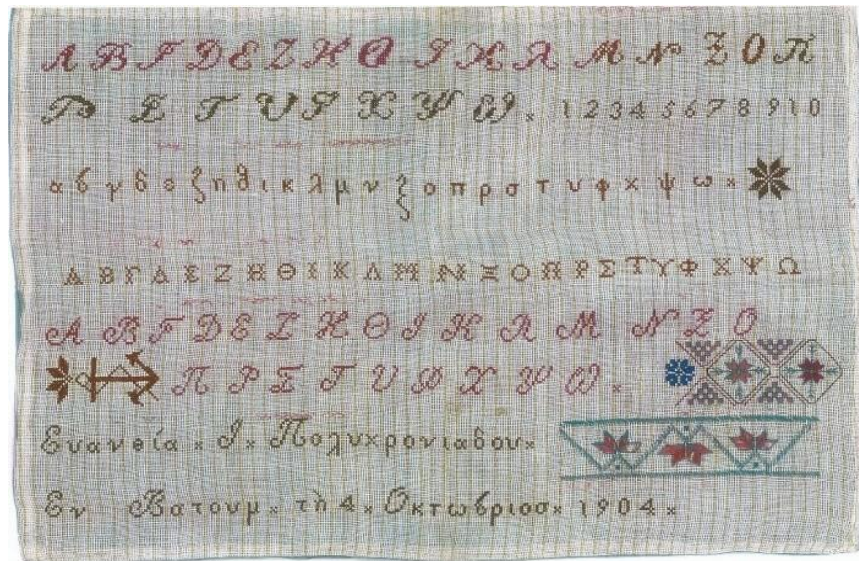 Α Β Γ Δ Ε Ζ Η Θ Ι Κ Λ Μ Ν Ξ Ο Π
Ρ Σ Τ Υ Φ Χ Ψ Ω × 1 2 3 4 5 6 7 8 9 10
α β γ δ ε ζ η θ ι κ λ μ ν ξ ο π ρ σ τ υ φ χ ψ ω ×
Α Β Γ Δ Ε Ζ Η Θ Ι Κ Λ Μ Ν Ξ Ο Π Ρ Σ Τ Υ Φ Χ Ψ Ω
Α Β Γ Δ Ε Ζ Η Θ Ι Κ Λ Μ Ν Ξ Ο
Π Ρ Σ Τ Υ Φ Χ Ψ Ω ×
Ευανθία × Ι × Πολυχρονιαδου ×
Εν Βατουμ × τὴ 4 × Οκτωβριοσ × 1904 ×